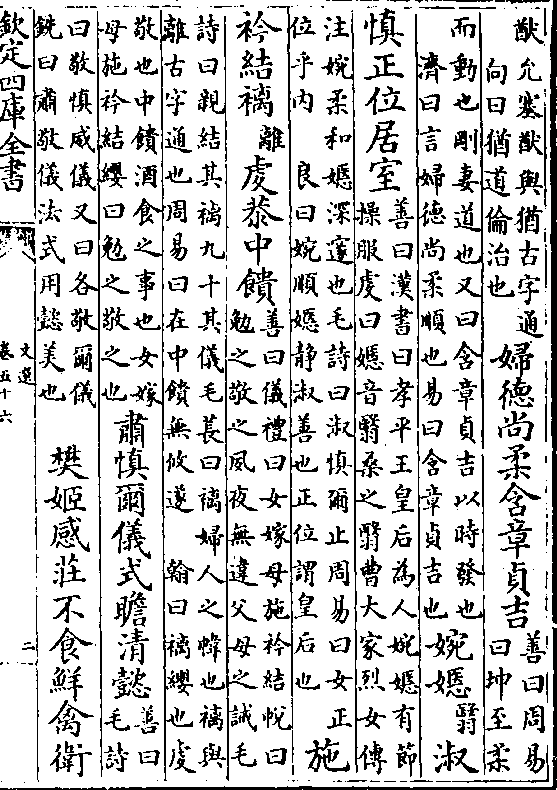 猷允塞猷與猶古字通
向曰猶道倫治也
婦德尚柔含章貞吉
善曰周易
曰坤至柔
而動也剛妻道也又曰含章貞吉以時發也
濟曰言婦德尚柔順也易曰含章貞吉也
婉嫕翳淑
慎正位居室
善曰漢書曰孝平王皇后為人婉嫕有節
操服虔曰嫕音翳桑之翳曹大家烈女傳
注婉柔和嫕深邃也毛詩曰淑慎爾止周易曰女正
位乎内 良曰婉順嫕静淑善也正位謂皇后也
施
衿結褵離虔恭中饋
善曰儀禮曰女嫁母施衿結帨曰
勉之敬之夙夜無違父母之誡毛
詩曰親結其褵九十其儀毛萇曰褵婦人之幃也褵與
離古字通也周易曰在中饋無攸遂 翰曰褵纓也虔
敬也中饋酒食之事也女嫁
母施衿結纓曰勉之敬之也
肅慎爾儀式瞻清懿
善曰
毛詩
曰敬慎威儀又曰各敬爾儀
銑曰肅敬儀法式用懿美也
樊姬感莊不食鮮禽衛
欽定四庫全書
文選
卷五十六
二